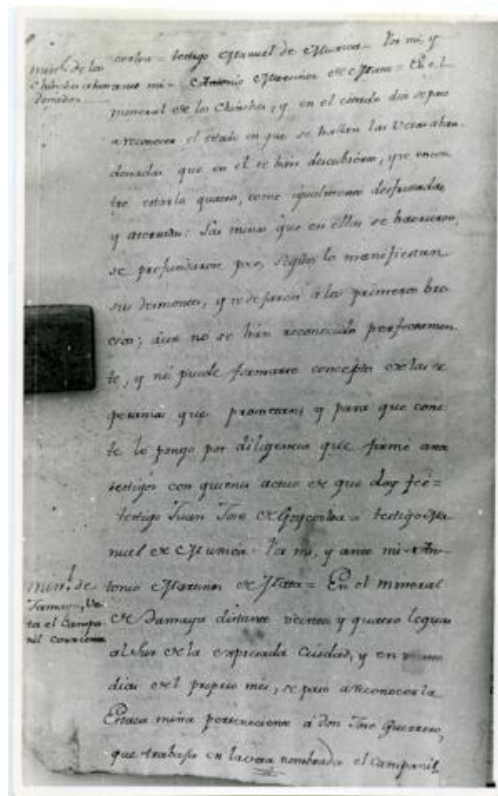 testigo Manuel de Murica Por mi, y
Min.l de los
Chinches aban
donados
ante mi = Antonio Martinez de Mata = En el
mineral de los Chinches, y en el citado dia se paso
a reconocer el estado en que se hallan las vetas aban
donadas que en el se han descubierto, y se encon
tro estarla quatro, como igualmente desfrutadas
y aterradas: Las minas que en ellas se havrieron,
se profundaron poco, segun lo manifiestan
sus desmontes, y se dejaron á las primeras bra
aun no se han reconocido perfectamen
te, y no puede formarse concepto de las es
peranzas que prometan; y para que cons
te lo pongo por diligencia que firmé con
testigos con quienes actuo de que doy feé =
testigo Juan Jose de Goycochea = testigo Ma
nuel de Murica Por mi, y ante mi = An
Min.l de
Tamaya, Ve
ta el Campa
nil corriente
tonio Martinez de Mata = En el mineral
de Tamaya distante veinte y quatro leguas
al Sur de la expresada Ciudad, y en
dias del proprio mes, se paso a reconocer la
Estaca mina perteneciente á Don Jose Guerrero,
que trabaja en la veta nombrada el Campanil,